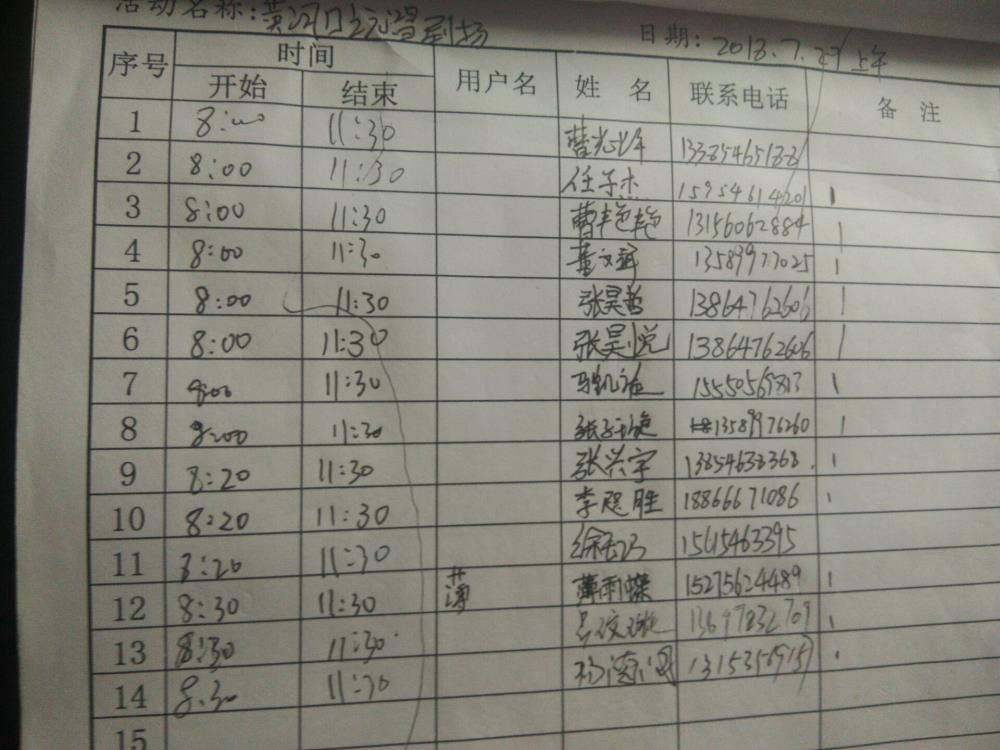 活动名称:黄河口
日期: 2013.7.27上午
序号 时间 用户名 姓 名 联系电话 备 注
开始 结束
1 8:00 11:30 13385465188
2 8:00 11:30 任子杰 15954614201
3 8:00 11:30 曹艳艳 13156062884
4 8:00 11:30 董文 13589977025
5 8:00 11:30 张昊哲 13864762606
6 8:00 11:30 张昊悦 13864762606
7 8:00 11:30 15550569813
8 8:00 11:30 13589976260
9 8:20 11:30 张兴宇 13854638368
10 8:20 11:30 李 胜 18866671086
11 8:20 11:30 徐 15615463395
12 8:30 11:30 薄雨蝶 15275624489
13 8:30 11:30 13697832709
14 8:30 11:30 杨 13153569157
15